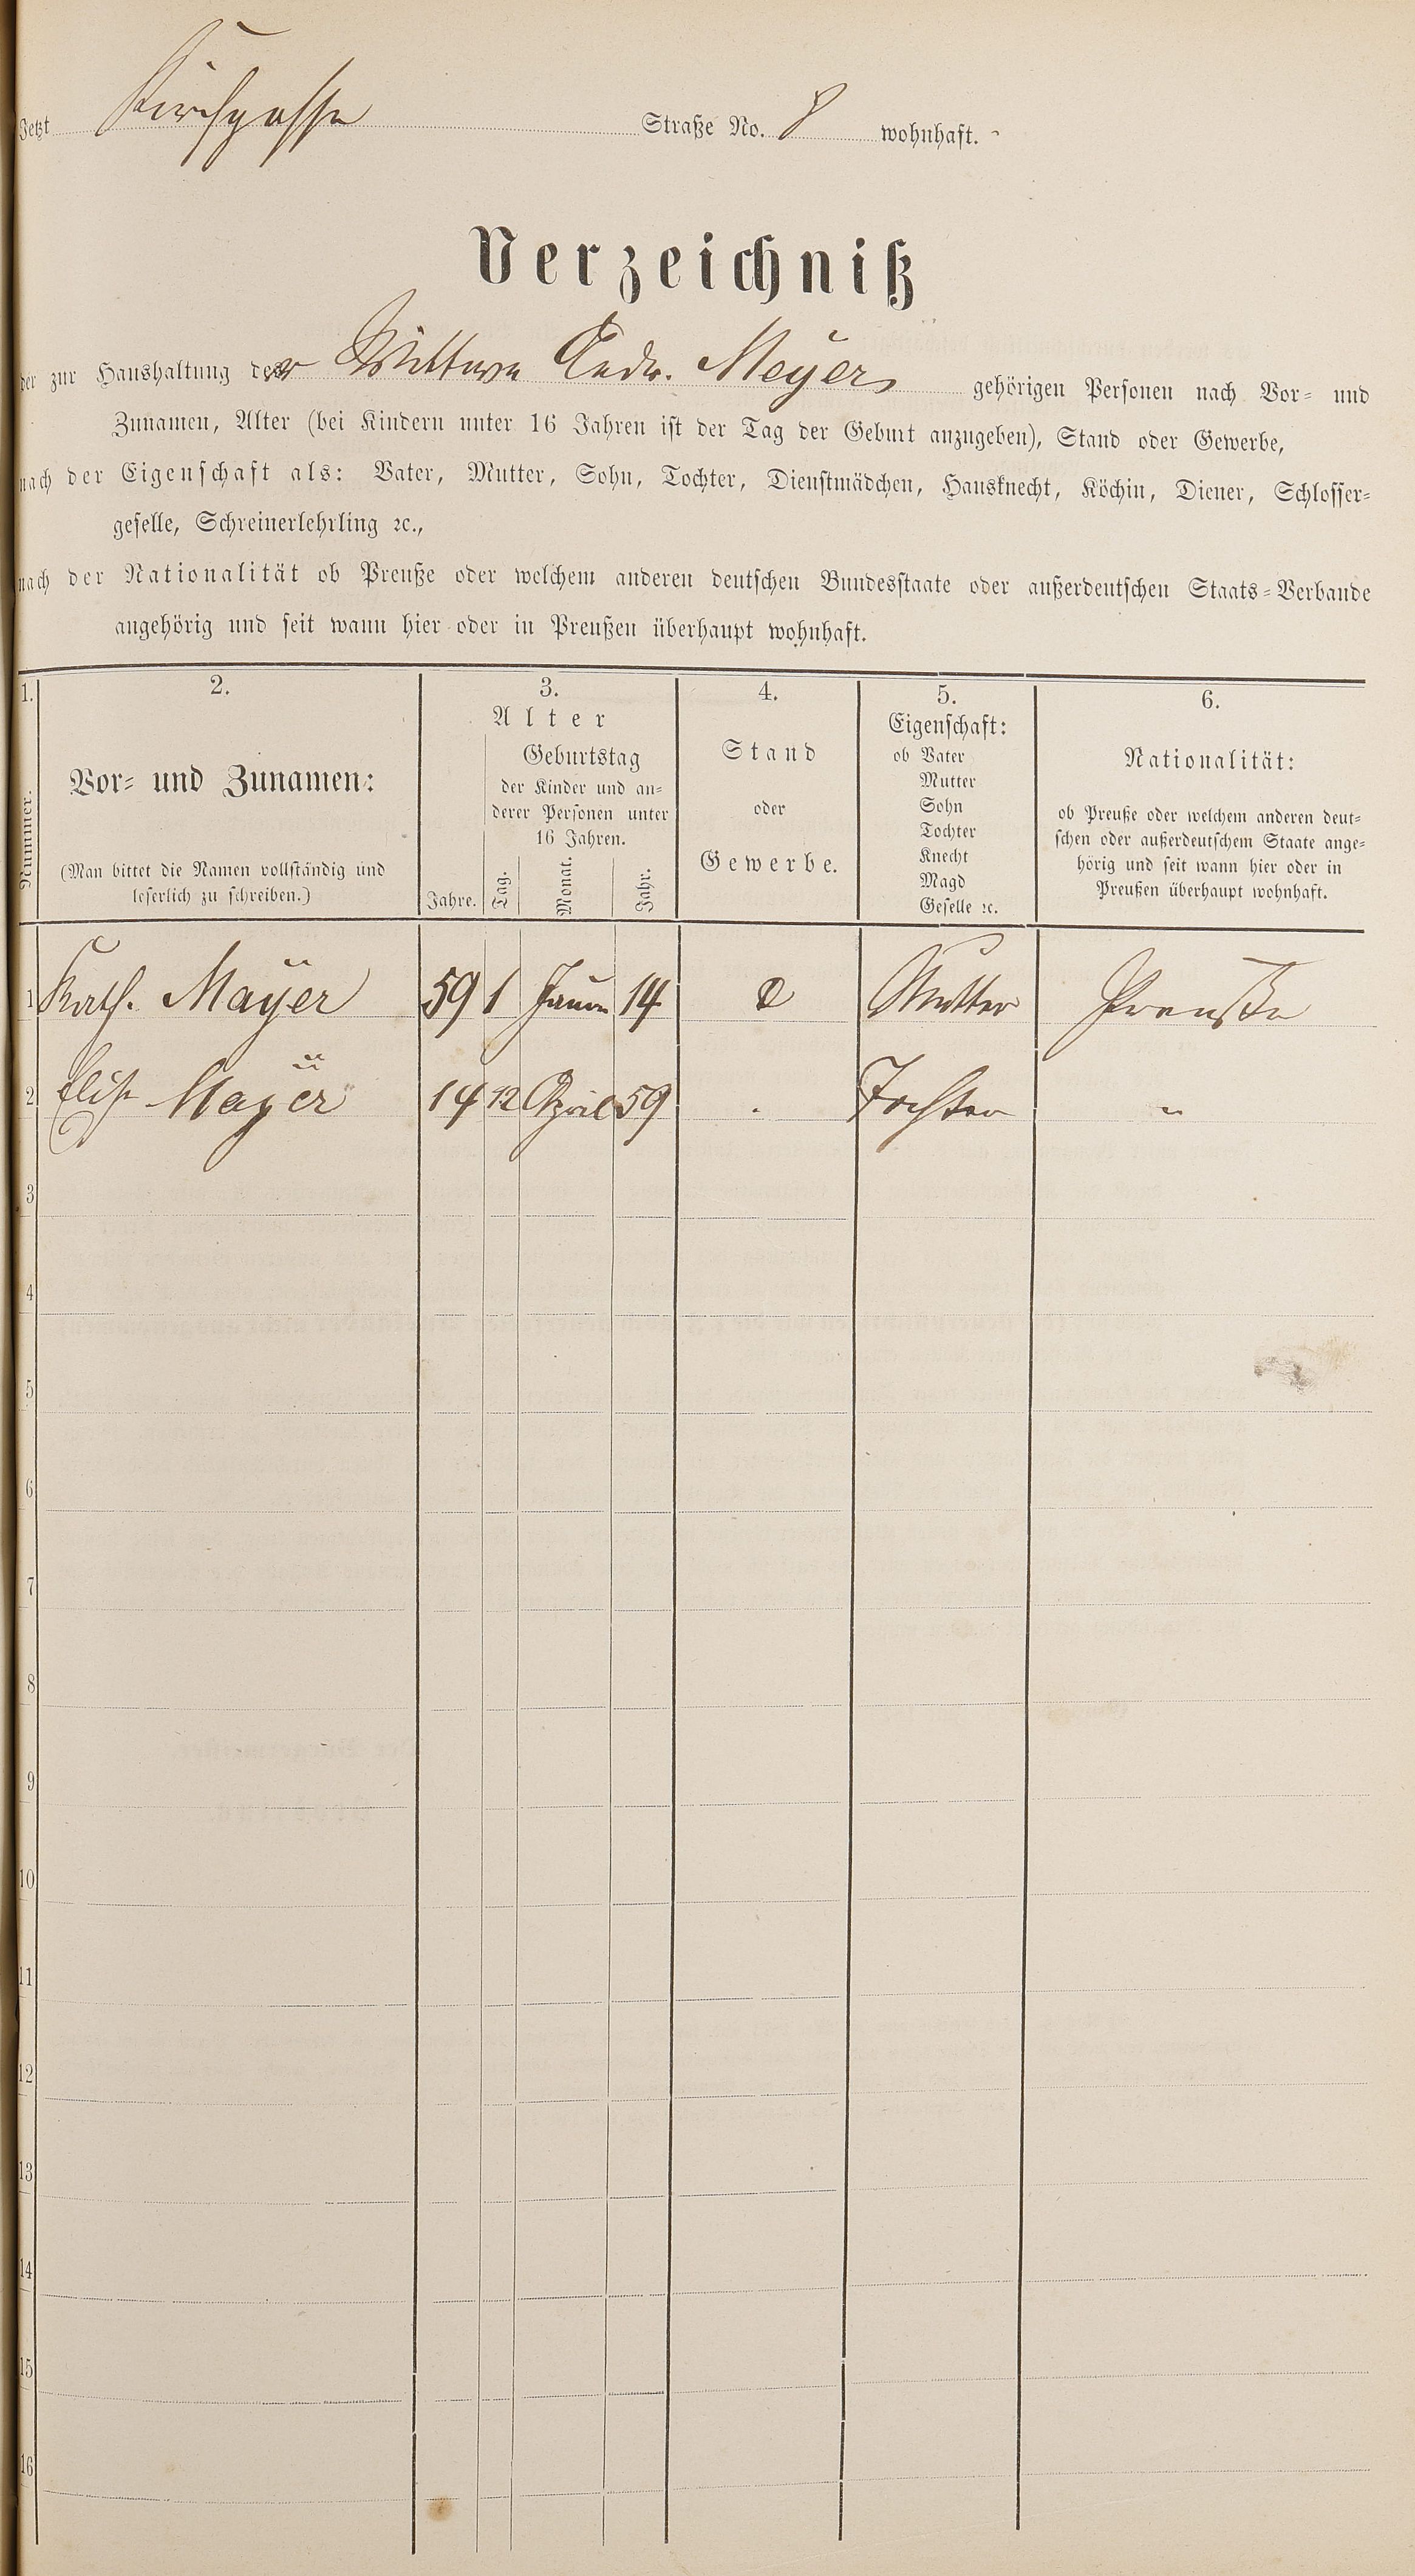 Jetzt Kirchgasse Straße No. 8 wohnhaft.
Verzeichniß
der zur Haushaltung der Wittwe Andr. Meyer gehörigen Personen nach Vor- und
Zunamen, Alter (bei Kindern unter 16 Jahren ist der Tag der Geburt anzugeben), Stand oder Gewerbe,
nach der Eigenschaft als: Vater, Mutter, Sohn, Tochter, Dienstmädchen, Hausknecht, Köchin, Diener, Schlosser-
geselle, Schreinerlehrling ꝛc.,
nach der Nationalität ob Preuße oder welchem anderen deutschen Bundesstaate oder außerdeutschen Staats-Verbande
angehörig und seit wann hier oder in Preußen überhaupt wohnhaft.
1.
Nummer.
2.
Vor- und Zunamen:
(Man bittet die Namen vollständig und
leserlich zu schreiben.)
3.
Alter
Jahre.
Geburtstag
der Kinder und an-
derer Personen unter
16 Jahren.
Tag. Monat. Jahr.
4.
Stand
oder
Gewerbe.
5.
Eigenschaft:
ob Vater
Mutter
Sohn
Tochter
Knecht
Magd
Geselle ꝛc.
6.
Nationalität:
ob Preuße oder welchem anderen deut-
schen oder außerdeutschem Staate ange-
hörig und seit wann hier oder in
Preußen überhaupt wohnhaft.
1 Kath. Mayer 59 1 Januar 14 Mutter Preuße
2 Elise Mayer 14 12 April 59 Tochter "
3
4
5
6
7
8
9
10
11
12
13
14
15
16